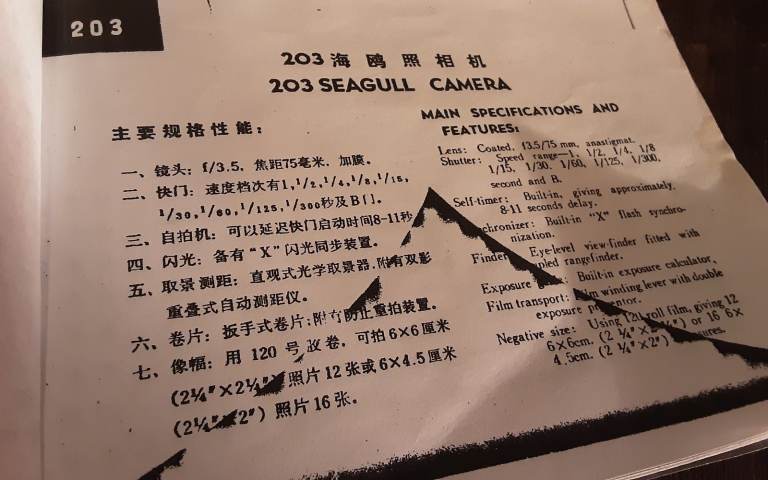 203
203 海 鸥 照 相 机
203 SEAGULL CAMERA
主要规格性能：
一、镜头：f/3.5，焦距75毫米，加膜。
二、快门：速度档次有1,1/2,1/4,1/8,1/15,
1/30,1/60,1/125,1/300秒及B门。
三、自拍机：可以延迟快门启动时间8-11秒
四、闪光：备有“X”闪光同步装置。
五、取景测距：直观式光学取景器,附有双影
重叠式自动测距仪。
六、卷片：扳手式卷片,附有防止重拍装置。
七、像幅：用 120 号 卷，可拍6×6厘米
(2¼″×2¼″) 照片12张或6×4.5厘米
(2¼″ 2″) 照片16张。
MAIN SPECIFICATIONS AND
FEATURES:
Lens: Coated, f3.5/75 mm, anastigmat.
Shutter: Speed range—1, 1/2, 1/4, 1/8
1/15, 1/30, 1/60, 1/125, 1/300,
second and B.
Self-timer: Built-in, giving approximately,
8-11 seconds delay.
chronizer: Built-in "X" flash synchro-
nization.
Finder Eye-level view-finder fitted with
pled rangefinder.
Exposure Built-in exposure calculator,
Film transport: winding lever with double
exposure
Negative size: Using roll film, giving 12
6×6cm. (2 ¼"×2 ) or 16 6×
4.5cm. (2 ¼"×2")